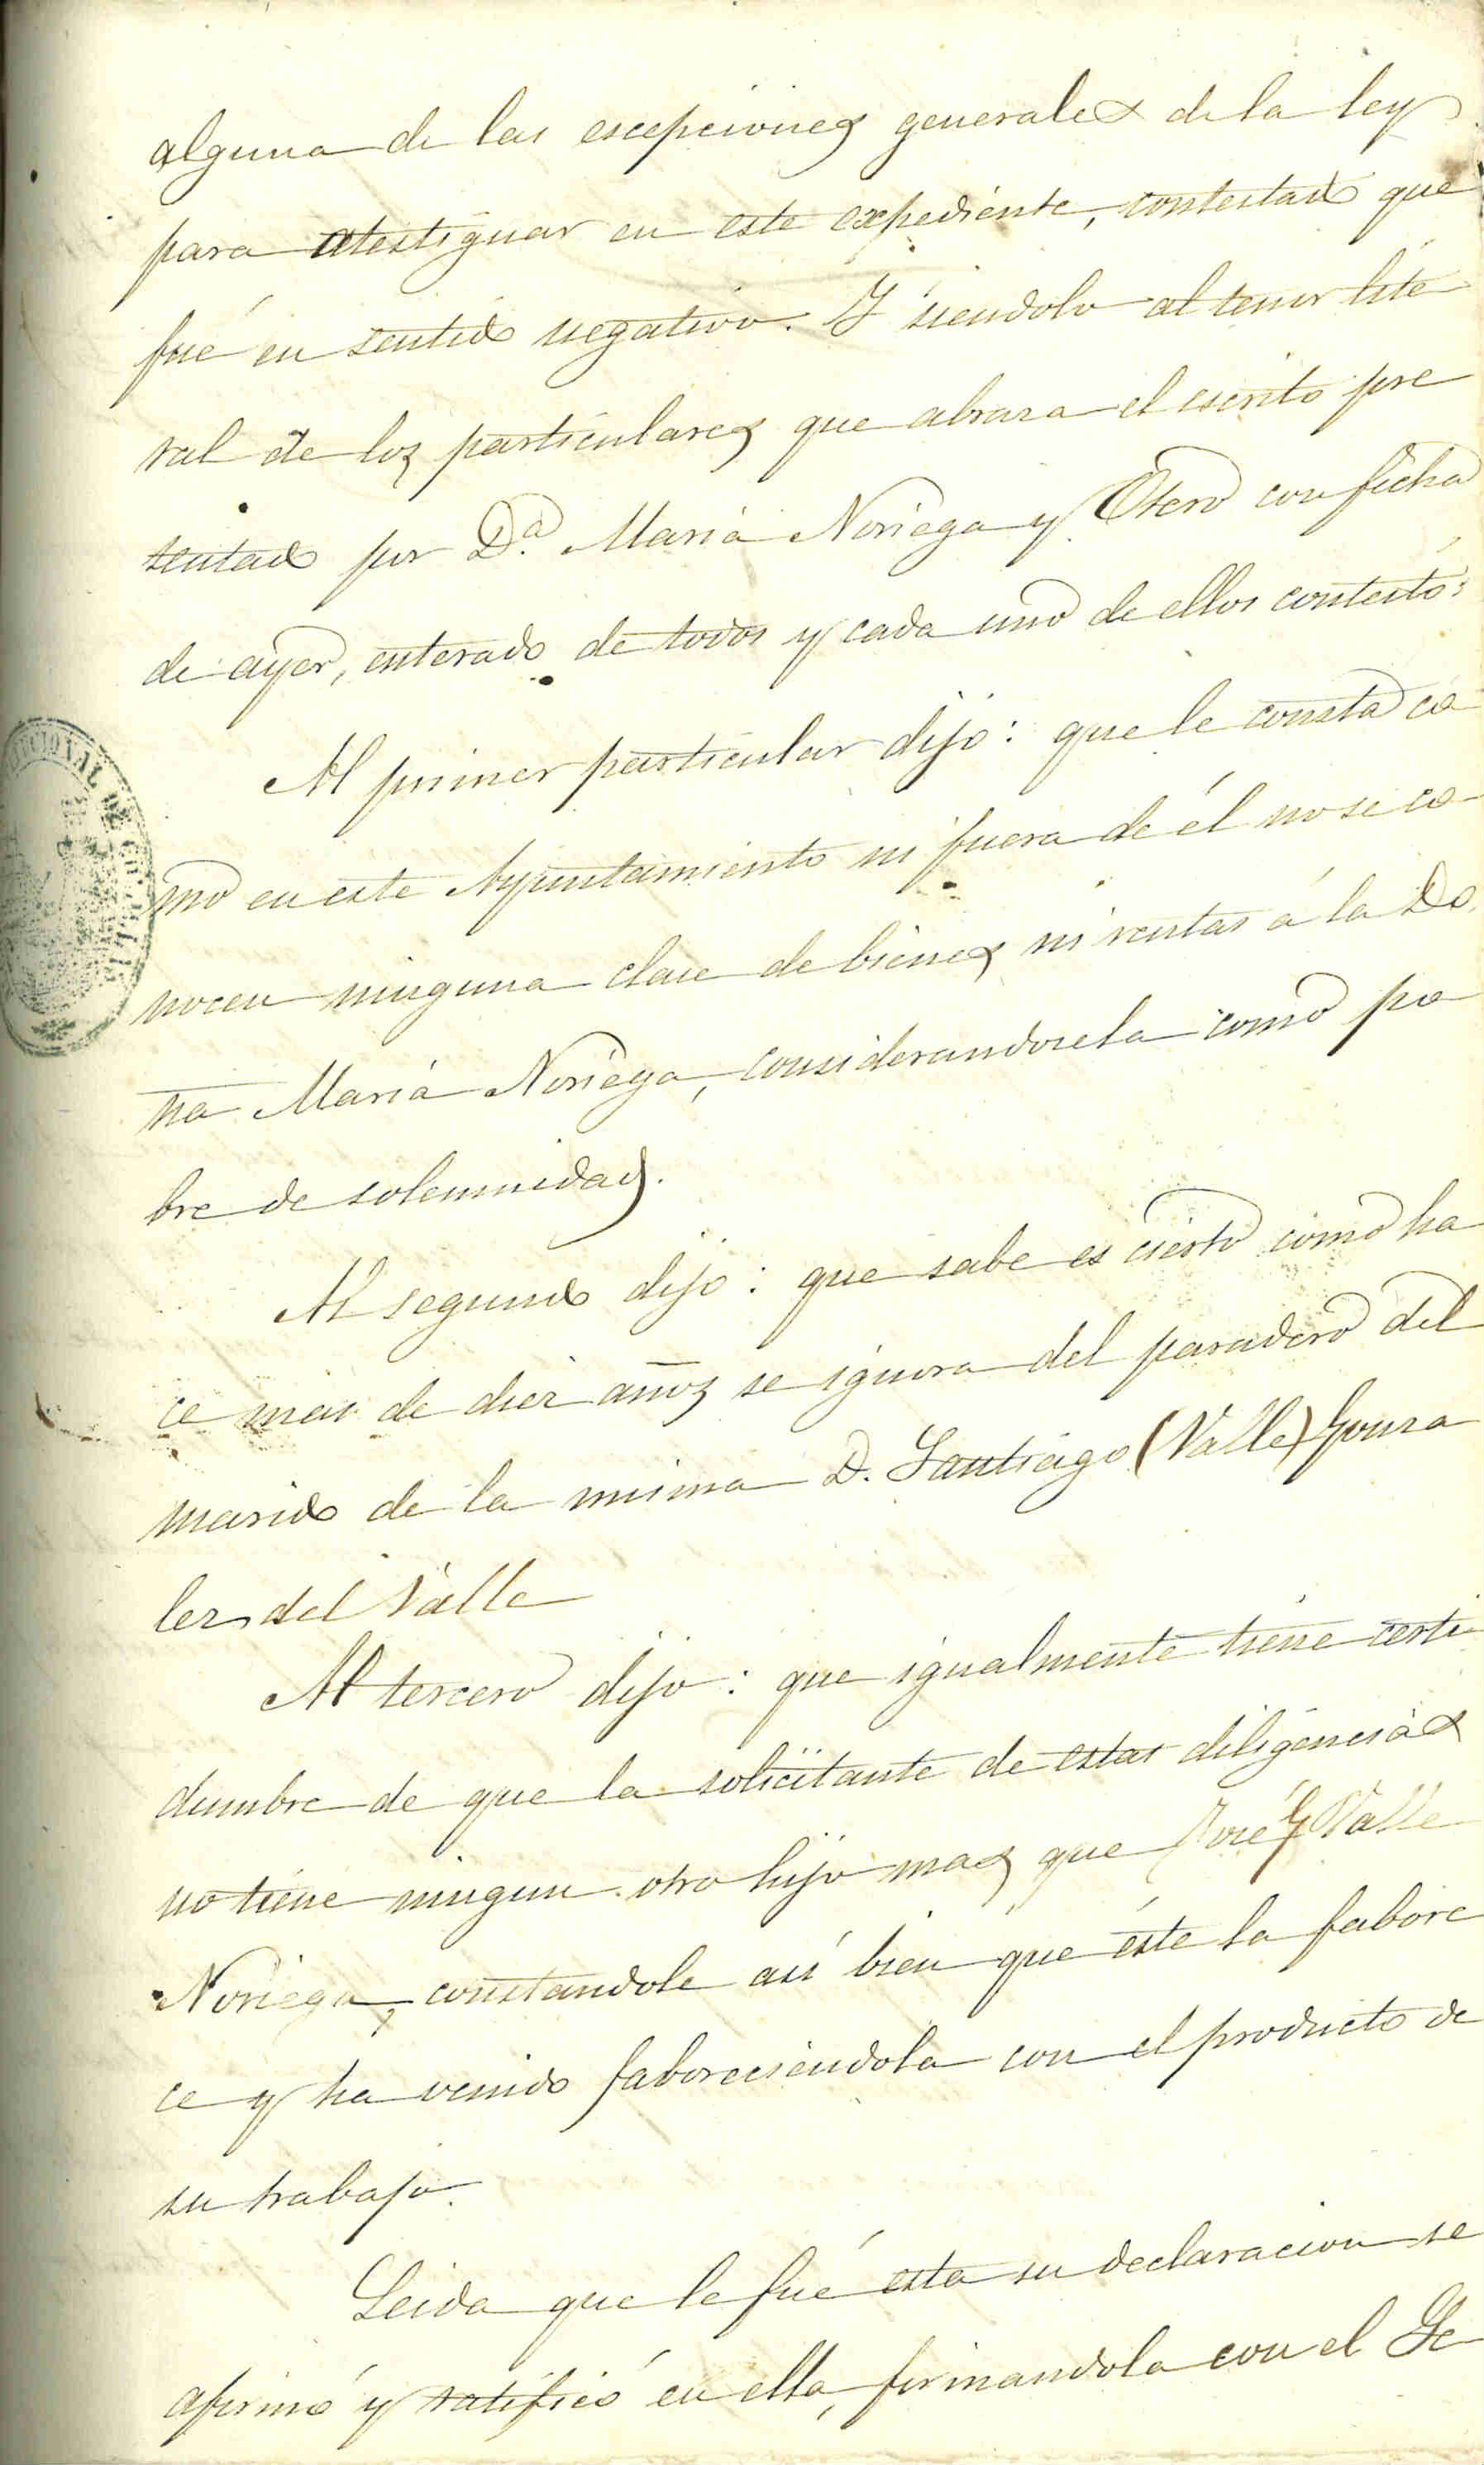 alguna de las escepciones generales de la ley
para atestiguar en este expediente, contestado que
fué en sentido negativo. Y siendolo al tenor lite
ral de los particulares que abraza el escrito pre
sentado por D.ª Maria Noriega y Otero con fecha
de ayer, enterado de todos y cada uno de ellos contestó:
Al primer particular dijo: que le consta co
mo en este Ayuntamiento ni fuera de él no se co-
nocen ninguna clase de bienes ni rentas á la Do
ña Maria Noriega, considerandosela como po
bre de solemnidad.
Al segundo dijo: que sabe es cierto como ha
ce mas de diez años se ignora del paradero del
marido de la misma D. Santiago (Valle) Gonza
lez del Valle
Al tercero dijo: que igualmente tiene certi
dumbre de que la solicitante de estas diligencias
no tiene ningun otro hijo mas que José G Valle
Noriega, constandole asi bien que éste la fabore
ce y ha venido faboreciendola con el producto de
su trabajo.
Leida que le fué esta su declaracion se
afirmó y ratificó en ella, firmandola con el Se
CIONAL DE